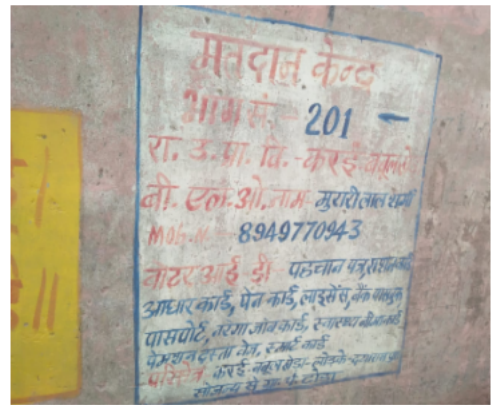 मतदान केन्द्र
भाग सं. - 201 -
रा. उ. प्रा. वि. - करई
बी. एल. ओ. नाम - मुरारी लाल शर्मा
8949770943
वोटर आई डी - पहचान पत्र, राशन कार्ड
आधार कार्ड, पेन कार्ड, लाइसेंस, बैंक पासबुक
पासपोर्ट, नरेगा जॉब कार्ड, स्वास्थ्य बीमा कार्ड
पेन्शन दस्तावेज, स्मार्ट कार्ड
करई
सौजन्य से ग्रा. पं.